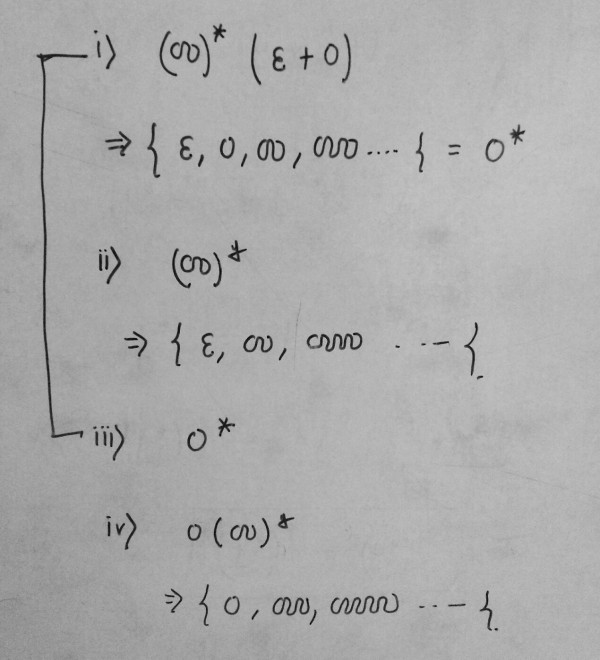 i) (00)* (ε + 0)
⇒ { ε, 0, 00, 000 .... { = 0*
ii) (00)*
⇒ { ε, 00, 0000 . .. – {.
iii) 0*
iv) 0 (00)*
⇒ { 0, 000, 00000 .. – {.